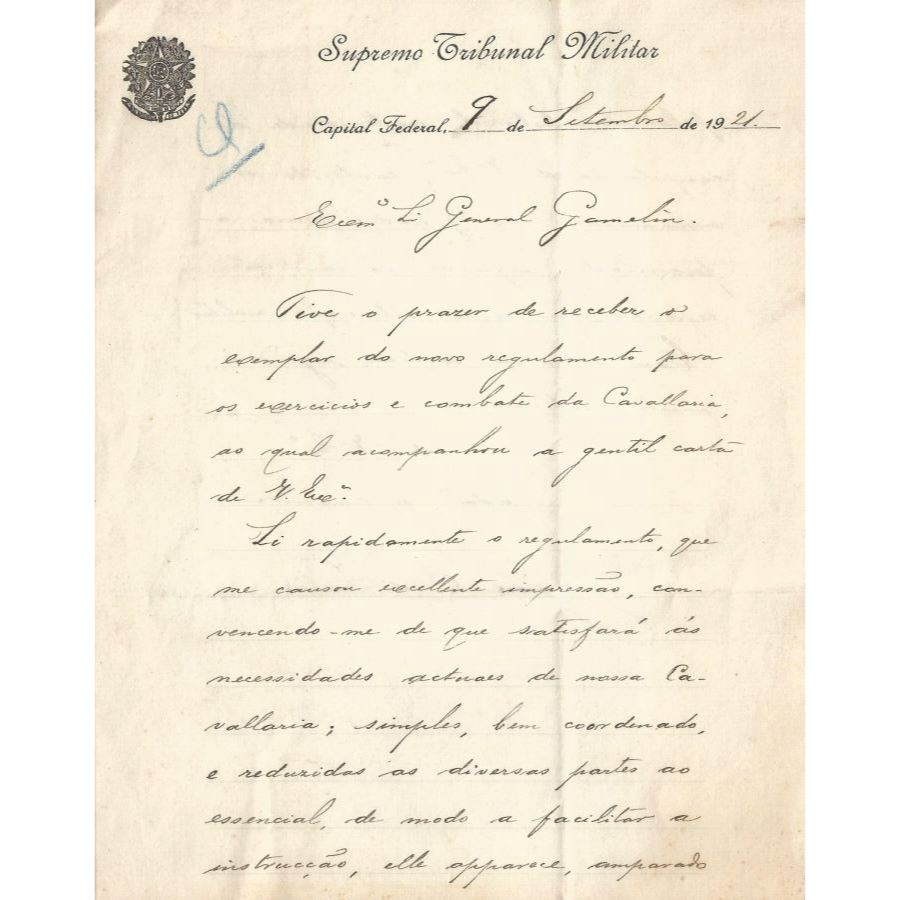 Supremo Tribunal Militar
Capital Federal, 9 de Setembro de 1921.
Exmº Sr General Gamelin.
Tive o prazer de receber o
exemplar do novo regulamento para
os exercicios e combate da Cavallaria,
ao qual acompanhou a gentil carta
de V. Exª.
Li rapidamente o regulamento, que
me causou excellente impressão, con-
vencendo-me de que satisfará ás
necessidades actuaes de nossa Ca-
vallaria; simples, bem coordenado,
e reduzidas as diversas partes ao
essencial, de modo a facilitar a
instrucção, elle apparece, amparado